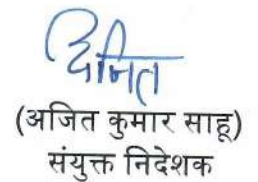 अजित
(अजित कुमार साहू)
संयुक्त निदेशक